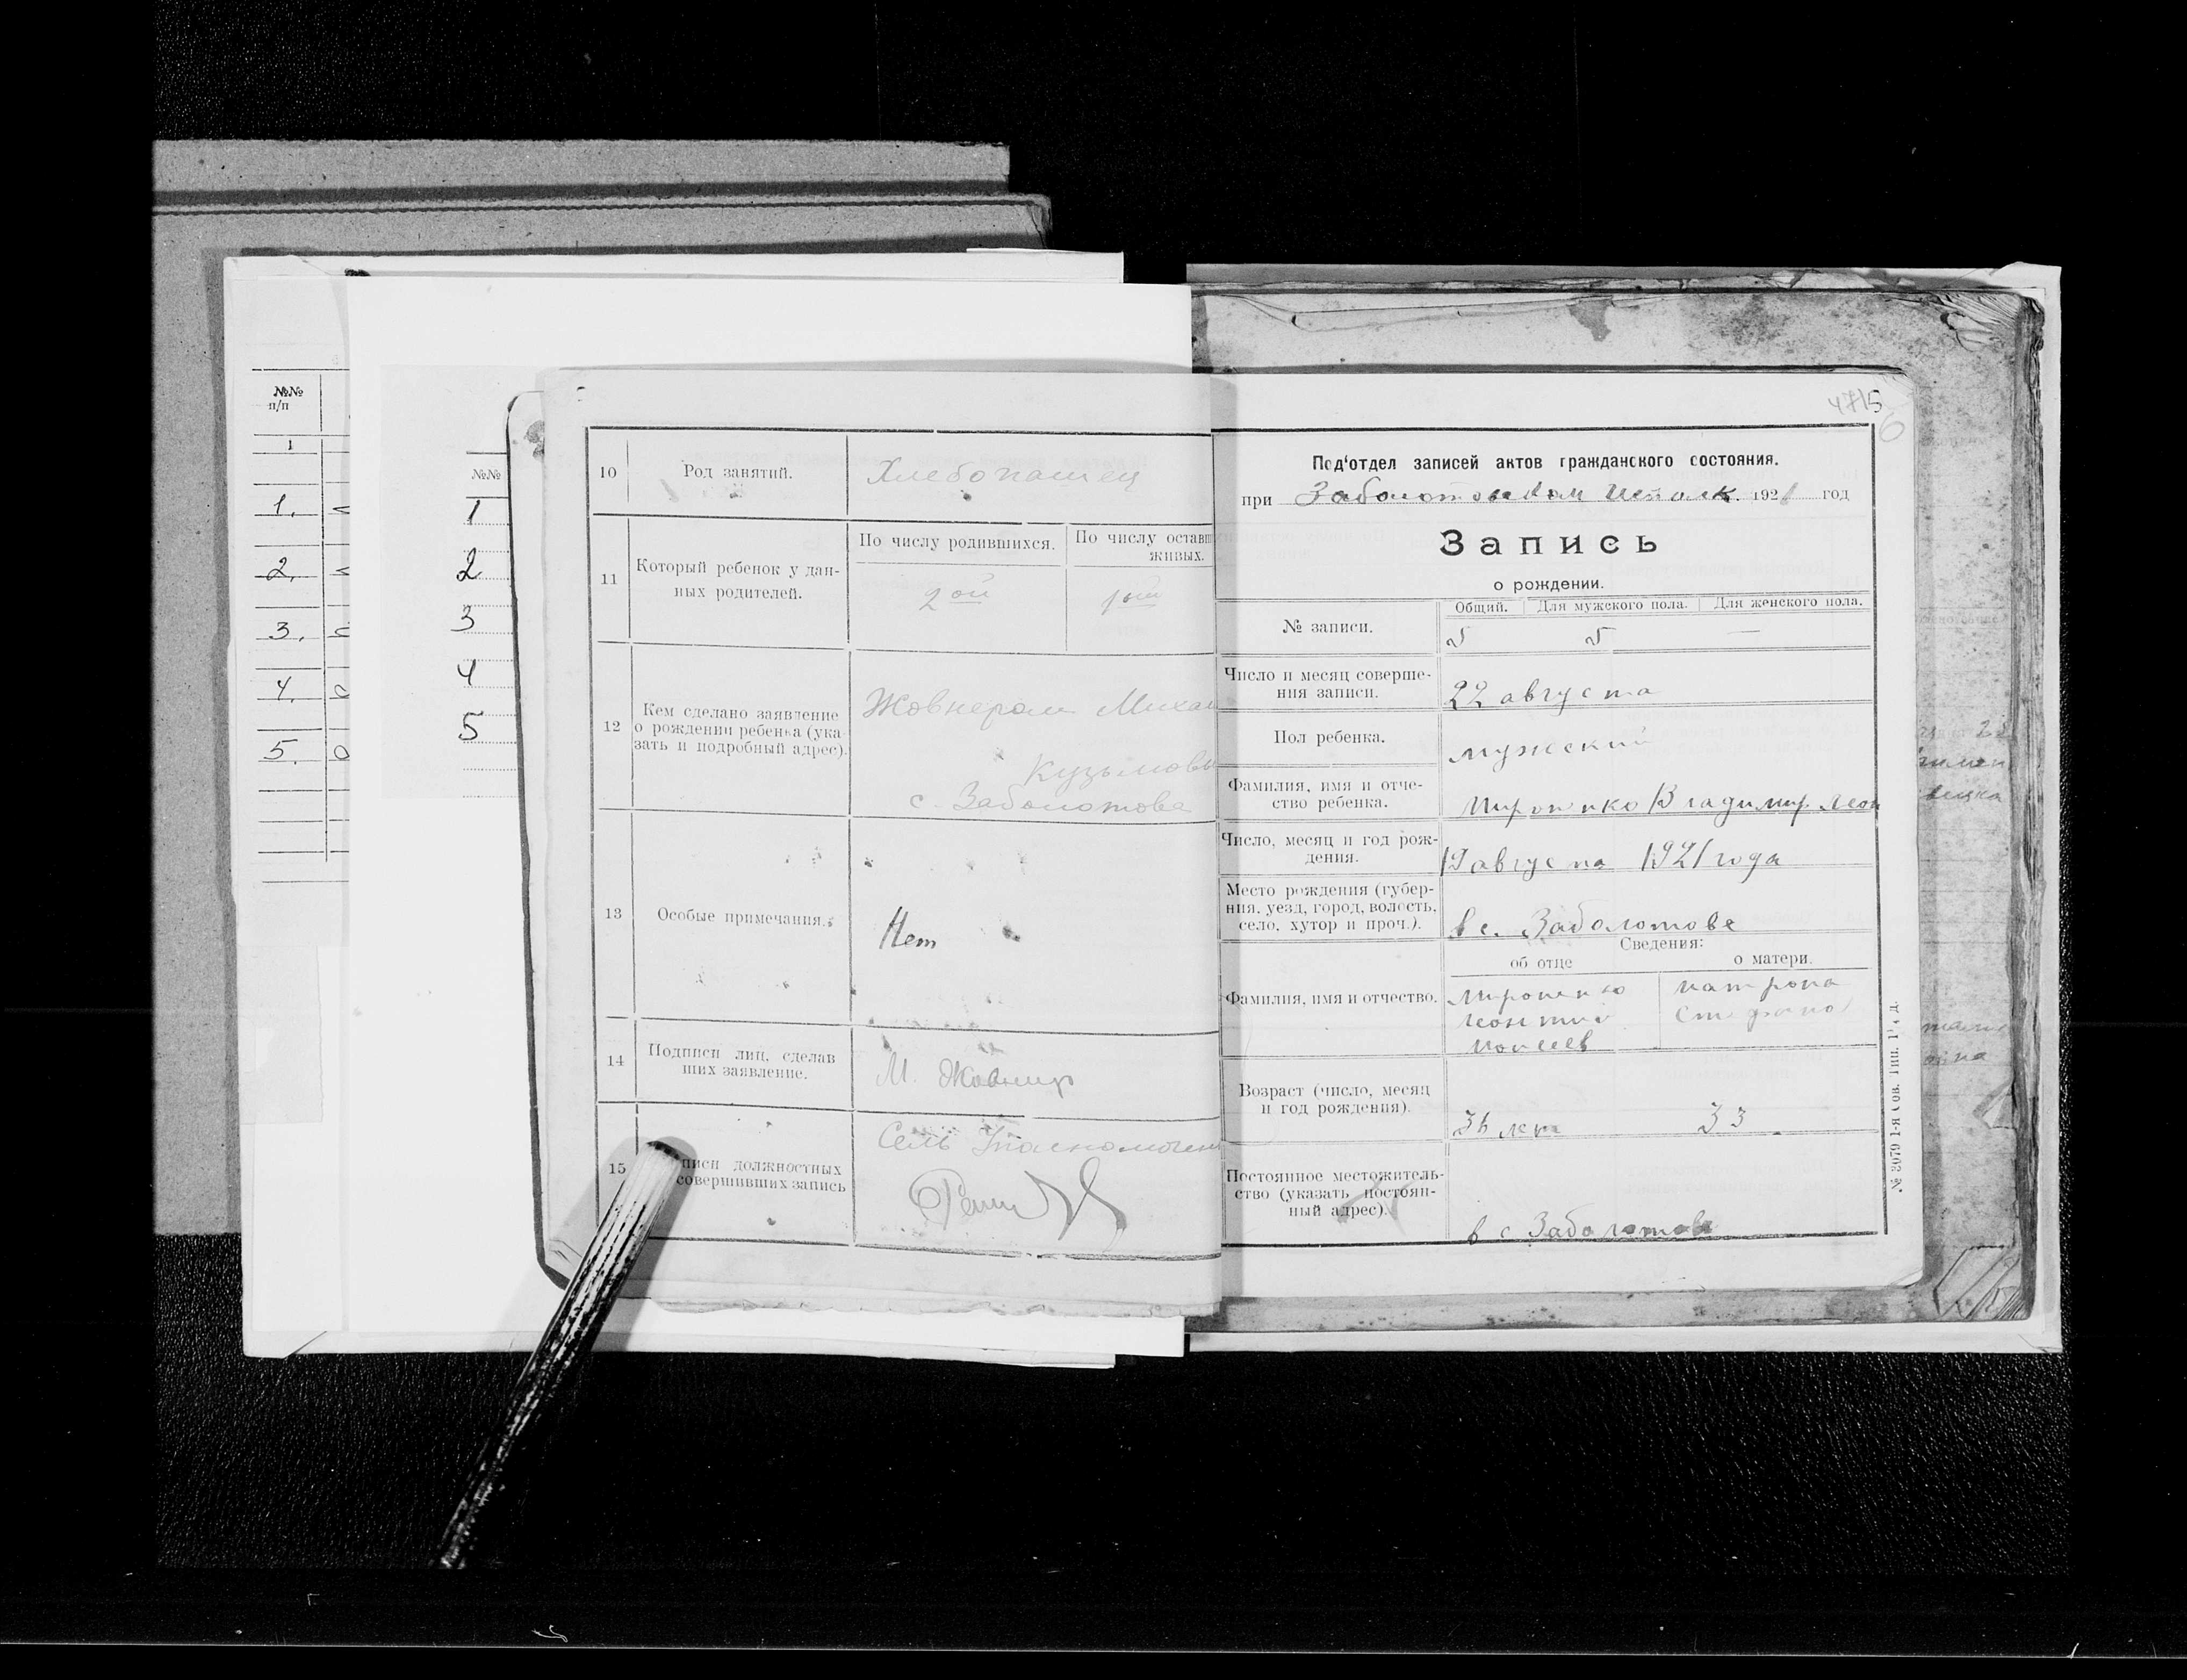 №№
п/п
1
1.
2.
3.
4.
5.
№№
1
2
3
4
5
10
Род занятий.
Хлебопашец
11
Который ребенок у дан-
ных родителей.
По числу родившихся.
По числу оставш
живых.
2 ой
1 ый
12
Кем сделано заявление
о рождении ребенка (ука-
зать и подробный адрес).
Жовнером Михаи
Кузьмовы
с. Заболотова
13
Особые примечания.
Нет
14
Подписи лиц, сделав
ших заявление.
М. Жовнир
15
писи должностных
совершивших запись
Сель
4715
6
Под'отдел записей актов гражданского состояния.
при Заболотовском Исполк. 1921 год
Запись
о рождении.
№ записи.
Общий. Для мужского пола. Для женского пола.
5 5 —
Число и месяц соверше-
ния записи.
22 августа
Пол ребенка.
мужский
Фамилия, имя и отче-
ство ребенка.
Мироненко Владимир Леон
Число, месяц и год рож-
дения.
19 августа 1921 года
Место рождения (губер-
ния, уезд, город, волость,
село, хутор и проч.).
в с. Заболотове
Сведения:
об отце
о матери.
Фамилия, имя и отчество.
Мироненко
Леонтий
Моисеев
Матрона
Возраст (число, месяц
и год рождения).
36 лет
33
Постоянное местожитель-
ство (указать постоян-
ный адрес).
в с Заболотове